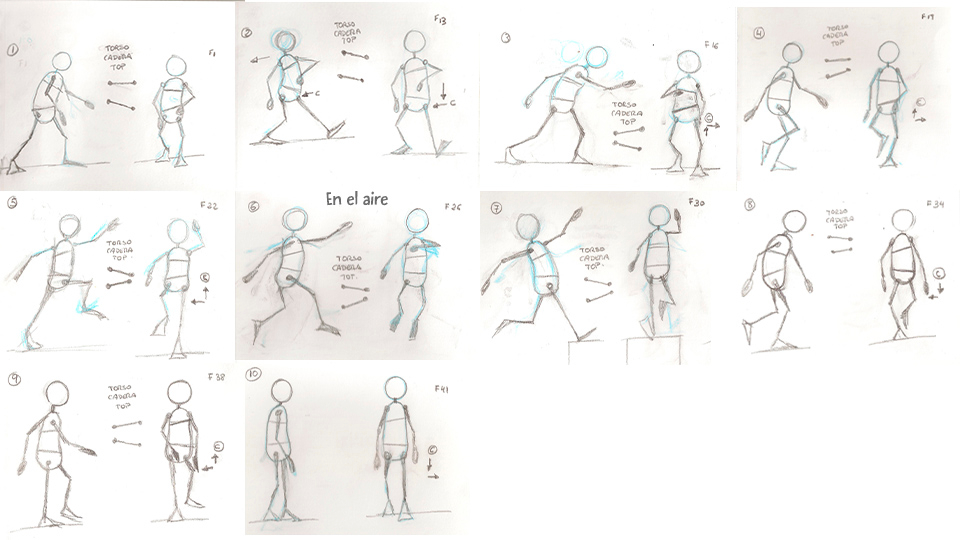 1
TORSO
CADERA
TOP
F1
2
TORSO
CADERA
TOP
F13
C
C
3
F16
TORSO
CADERA
TOP
C
4
TORSO
CADERA
TOP
F19
C
5
TORSO
CADERA
TOP.
F22
C
6
En el aire
F26
TORSO
CADERA
TOP.
7
F30
TORSO
CADERA
TOP.
8
TORSO
CADERA
TOP
F34
C
9
TORSO
CADERA
TOP
F38
C
10
F41
C